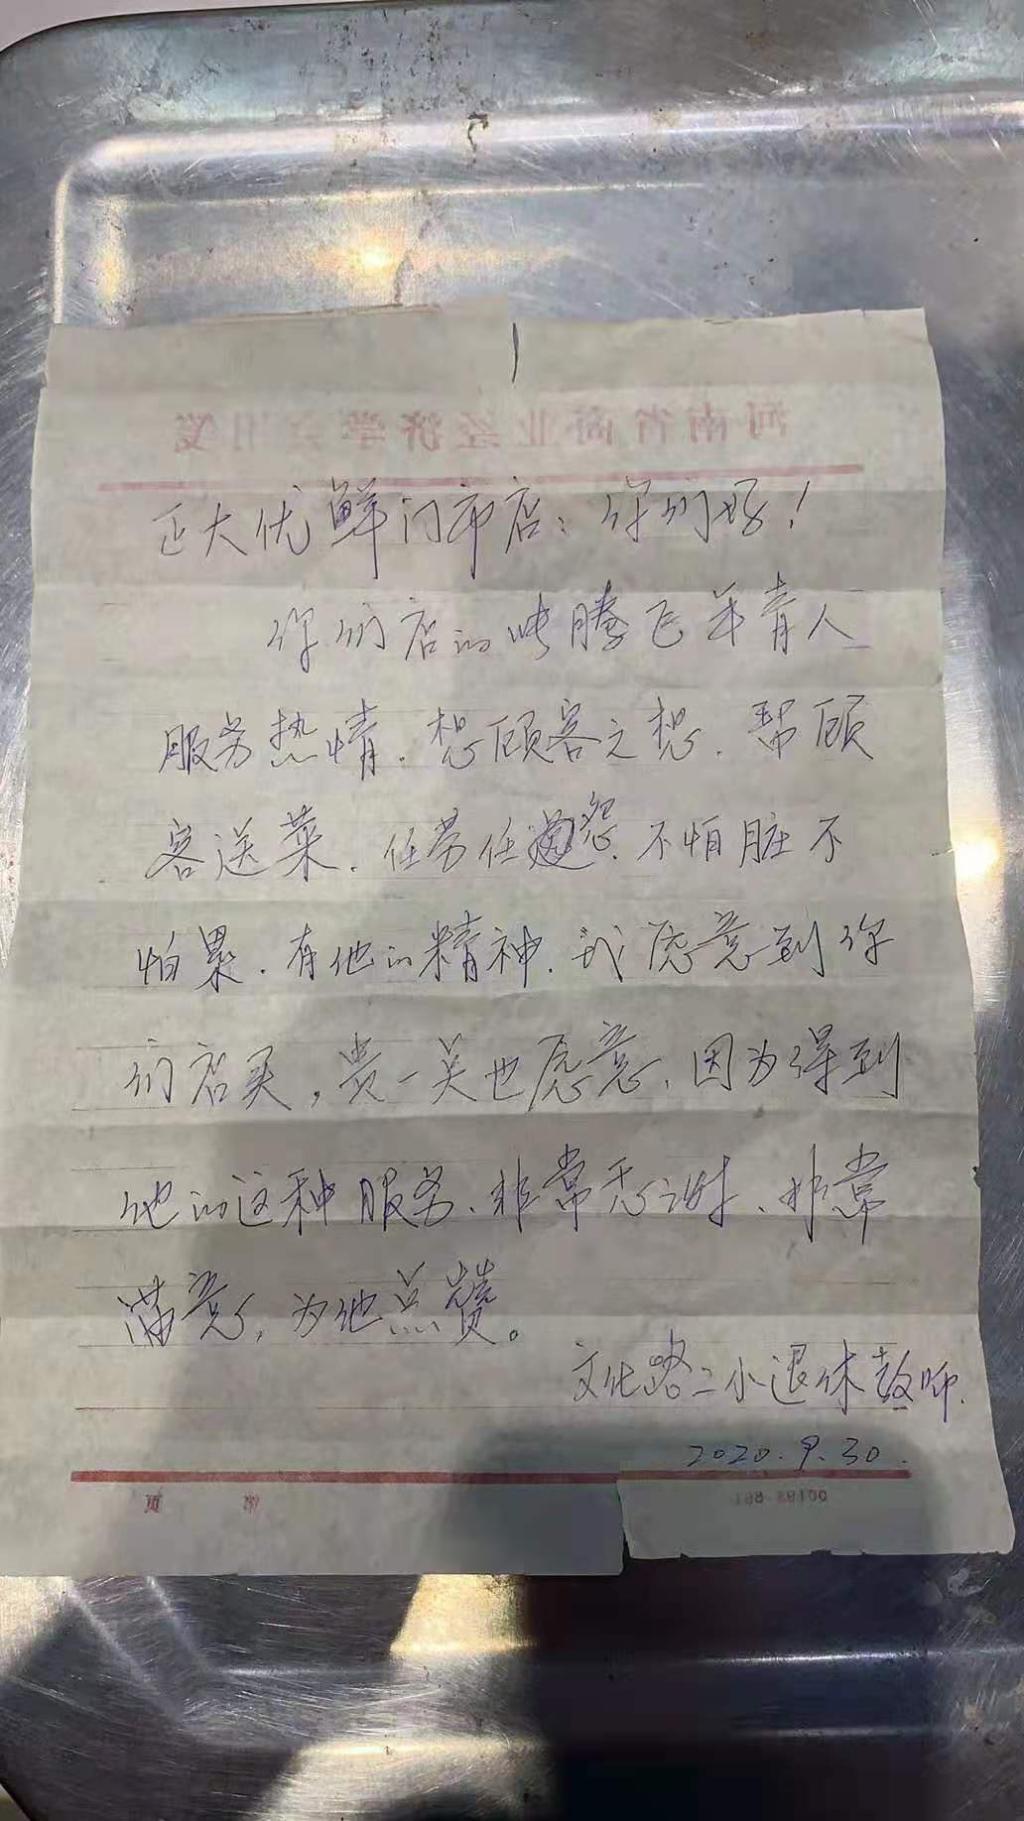 河南省商业经济学会用笺
正大优鲜门市店：你们好！
你们店的 腾飞年青人
服务热情．想顾客之想．帮顾
客送菜．任劳任怨．不怕脏不
怕累．有他的精神．我愿意到你
们店买，贵一点也愿意、因为得到
他的这种服务、非常感谢、非常
满意，为他点赞。
文化路二小退休教师．
2020.9.30.
第 页